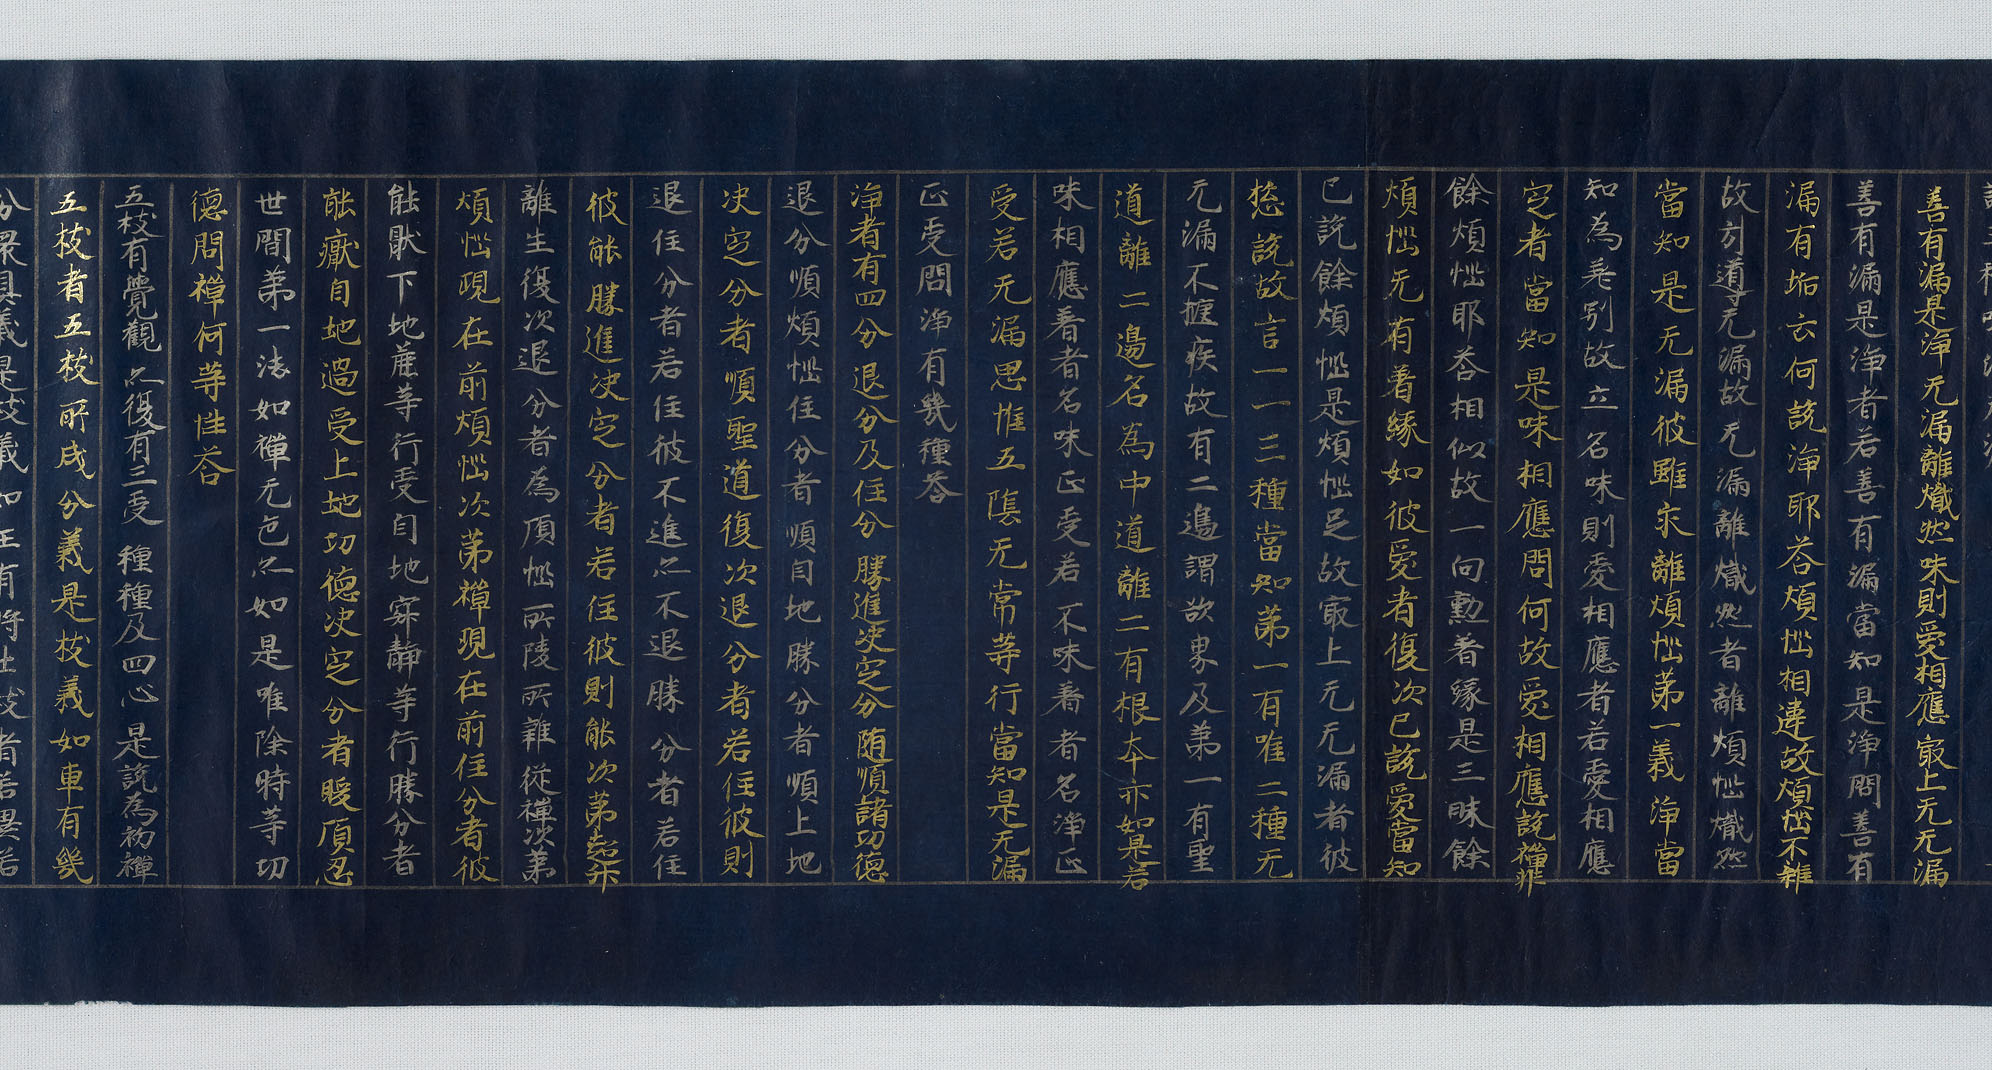 善有漏是淨无漏離熾然味則愛相應寂上无无漏
善有漏是淨者若善有漏當知是淨問善有
漏有垢云何說淨耶荅煩惱相違故煩惱不雜
故引導无漏故无漏離熾然者離煩惱熾然
當知是无漏彼雖永離煩惱第一義淨當
知為差別故立名味則愛相應者若愛相應
定者當知是味相應問何故愛相應說禪非
餘煩惱耶荅相似故一向懃著緣是三昧餘
煩惱无有著緣如彼愛者復次已說愛當知
已說餘煩惱是煩惱足故寂上无无漏者彼
愁說故言一一三種當知第一有唯二種无
无漏不捷疾故有二邊謂欲界及第一有聖
道離二邊名為中道離二有根本亦如是若
味相應著者名味正受若不味著者名淨正
受若无漏思惟五陰无常等行當知是无漏
正受問淨有幾種荅
淨者有四分退分及住分 勝進決定分 随順諸功德
退分順煩惱住分者順自地勝分者順上地
決定分者順聖道復次退分者若住彼則
退住分者若住彼不進亦不退勝分者若住
彼能勝進決定分者若住彼則能次第超昇
離生復次退分者為頂惱所陵所雜從禪次第
煩惱現在前煩惱次第禪現在前住分者彼
能猒下地麁等行受自地寂靜等行勝分者
能猒自地過受上地功德決定分者暖頂忍
世間第一法如禪无色亦如是唯除時等功
德問禪何等性荅
五枝有覺觀 亦復有三受 種種及四心 是說為初禪
五枝者五枝所成分義是枝義如車有幾
分眾具義是枝義如王有將士枝者若異若